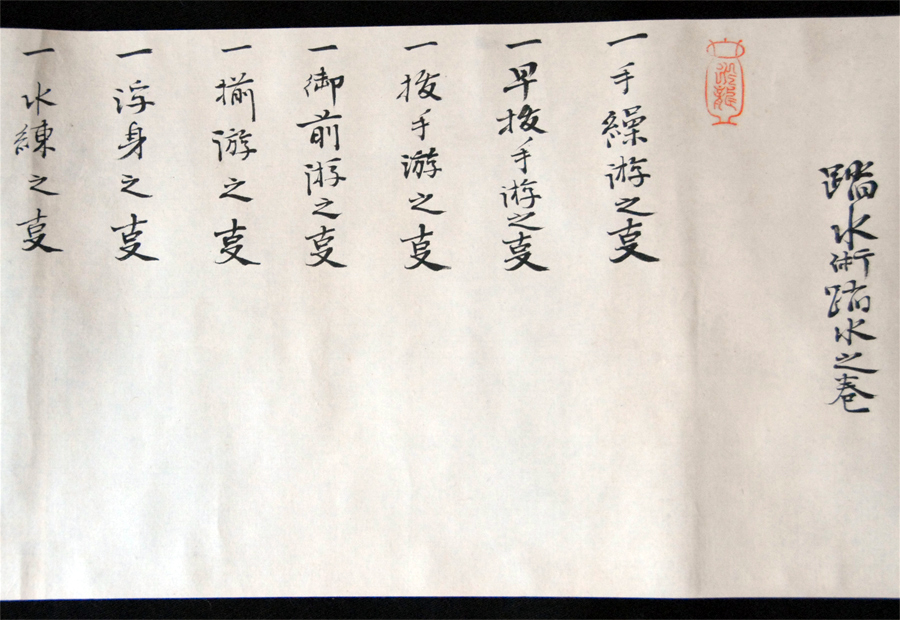 踏水術踏水之巻
一手繰游之叓
一早抜手游之叓
一抜手游之叓
一御前游之叓
一揃游之叓
一浮身之叓
一水練之叓